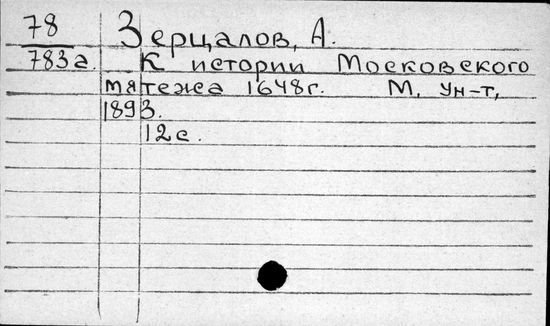 78 Зерцалов, А.
783а. К истории Московского
мятежа 1648г. М, Ун-т,
1893.
12с.